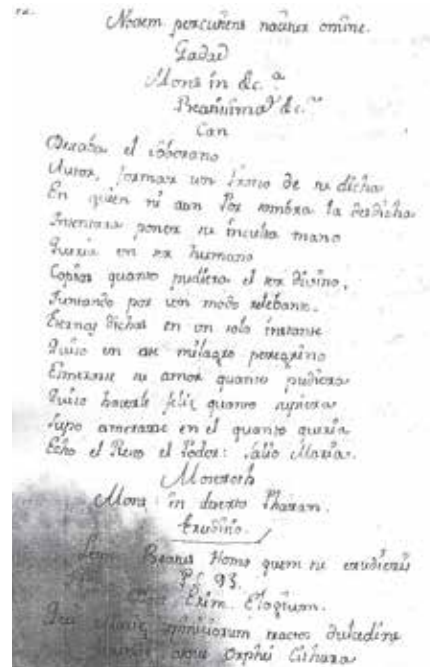 Nocem percutiens
Gadad
Mons in &c.ª
&c.
Can
Deseaba el soberano
Autor, formar un de su dicha
En quien ni aun Por sombra la desdicha
Intentara poner su inculta mano
Queria en ser humano
Copiar quanto pudiera el ser Divino,
Juntando por un modo
Eternas dichas en un solo instante
Quiso en ese milagro peregrino
Esmerarse su amor quanto pudiera
Quiso hacerle feliz quanto supiera
Supo esmerarse en el quanto queria
Echó el Resto el Poder: salio Maria.
Moseroth
Mons in deserto Pharan.
Eruditio.
Beatus Homo quem tu erudieris
Ps. 93.
Exim. Elogium.
dulcedine
Orphei Cithara